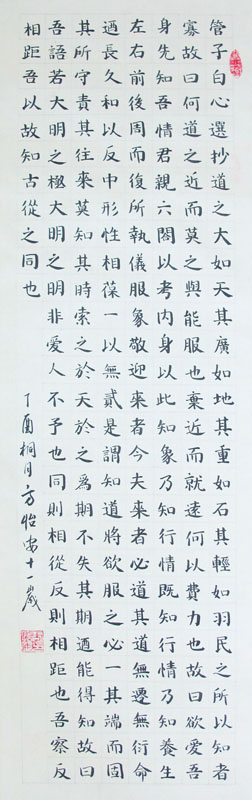 管子白心選抄道之大如天其廣如地其重如石其輕如羽民之所以知者
寡故曰何道之近而莫之與能服也棄近而就遠何以費力也故曰欲愛吾
身先知吾情君親六閤以考內身以此知象乃知行情既知行情乃知養生
左右前後周而復所執儀服象敬迎來者今夫來者必道其道無遷無衍命
迺長久和以反中形性相葆一以無貳是謂知道將欲服之必一其端而固
其所守責其往來莫知其時索之於天於之為期不失其期迺能得知故曰
吾語若大明之極大明之明非愛人不予也同則相從反則相距也吾察反
相距吾以故知古從之同也
丁酉桐月方怡安十一歲